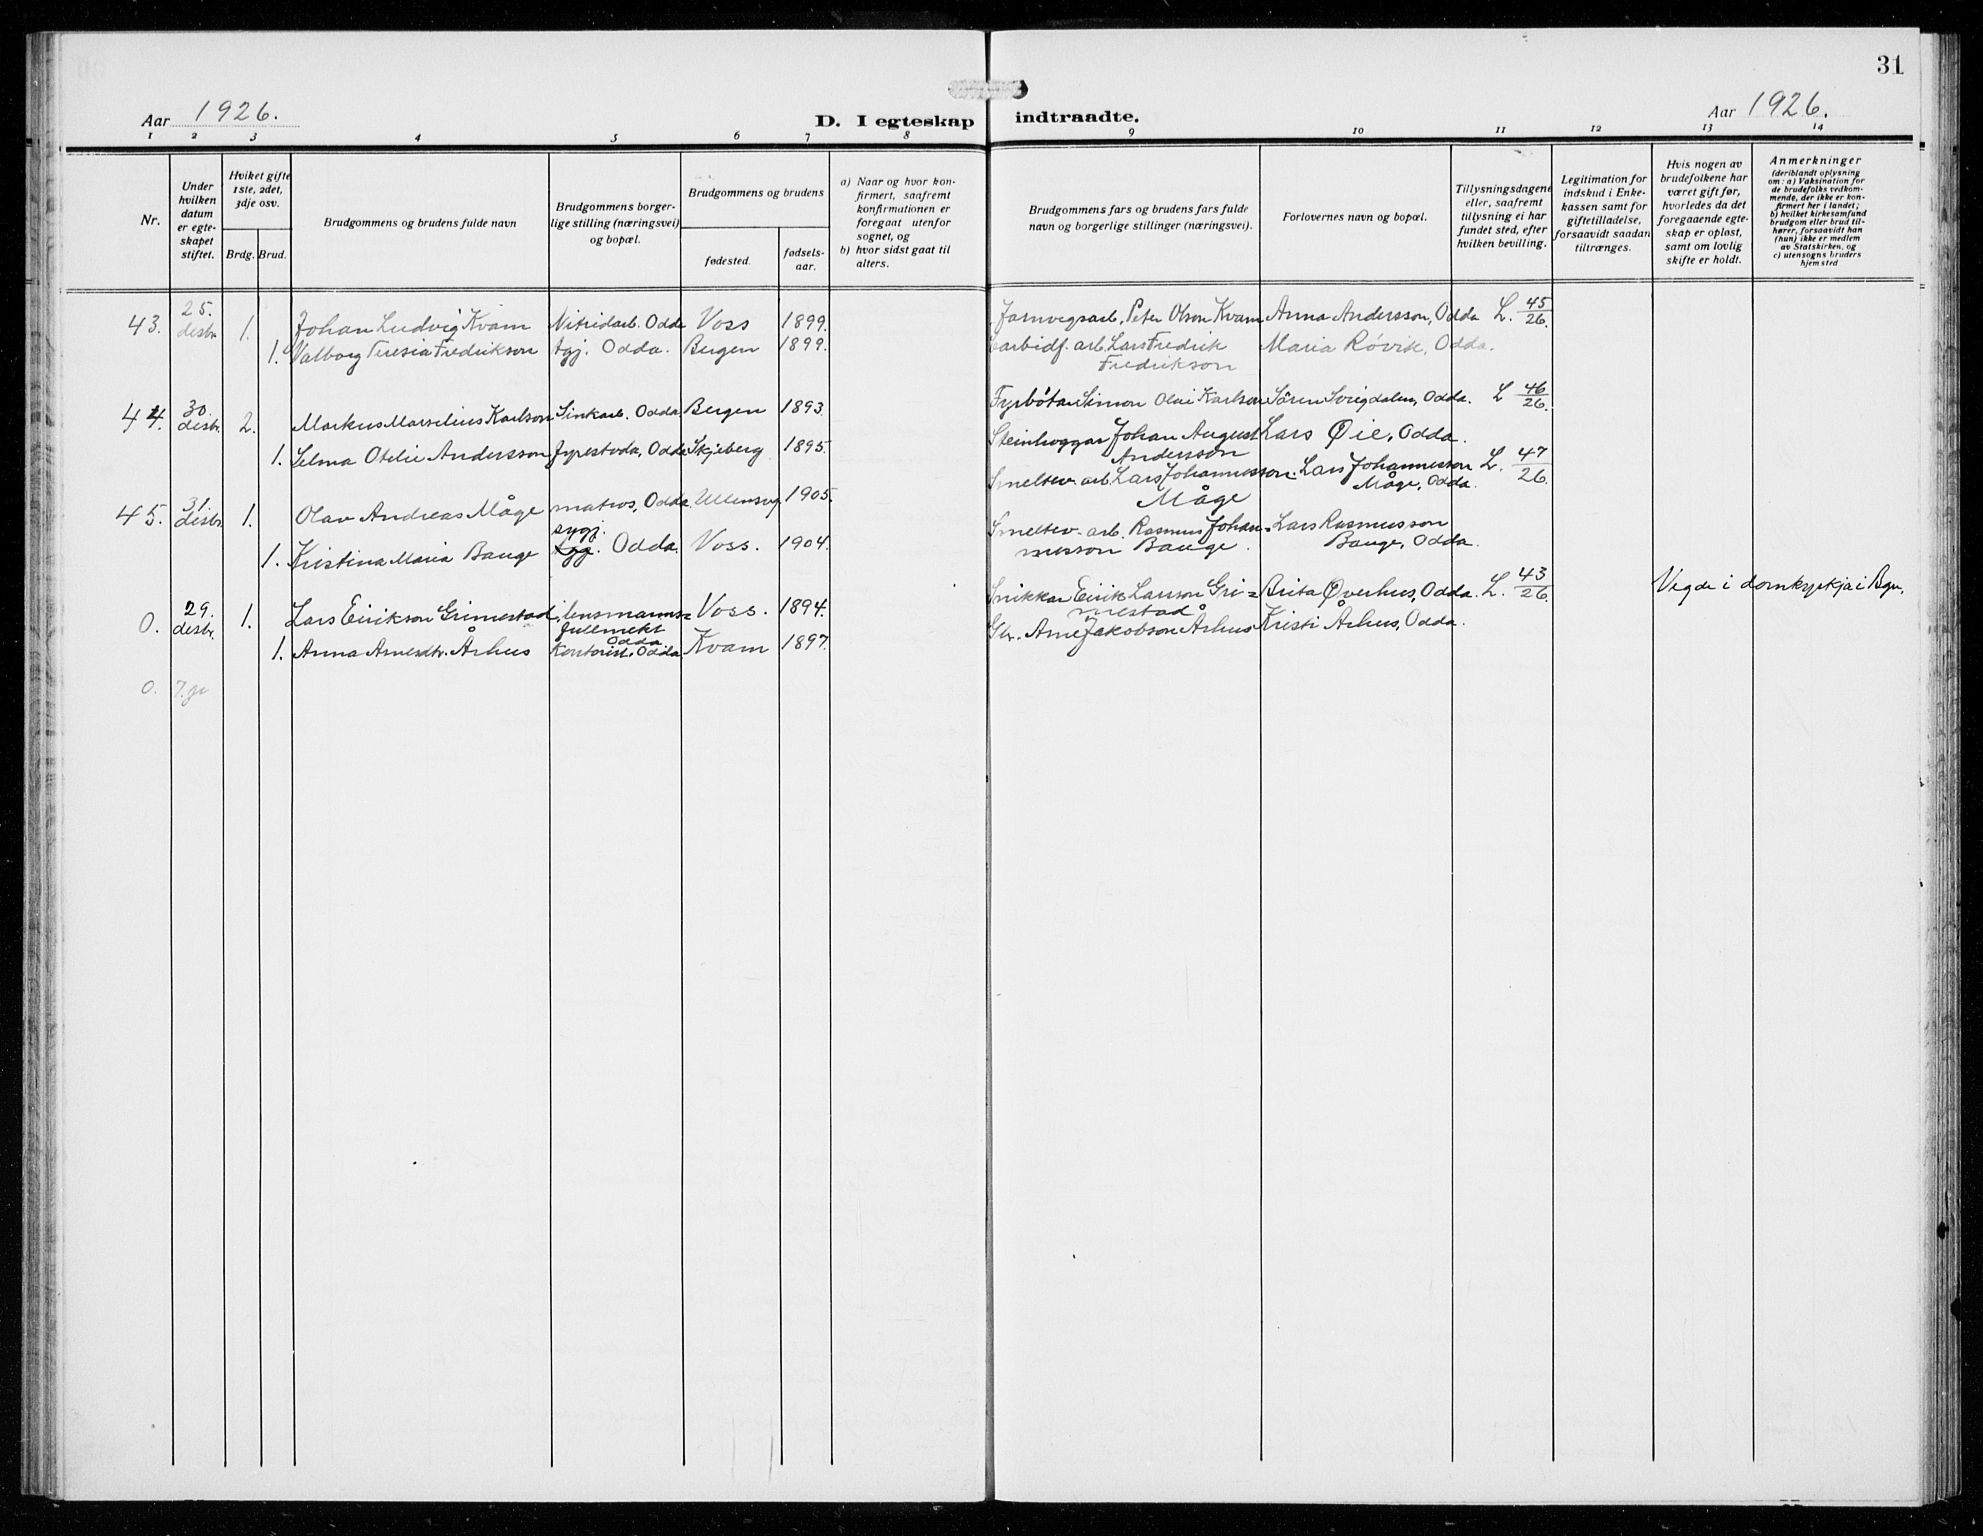 31
Aar 1926.
D. I egteskap indtraadte.
Aar 1926.
1 2 3 4 5 6 7 8 9 10 11 12 13 14
Nr.
Under
hvilken
datum
er egte-
skapet
stiftet.
Hviket gifte
1ste, 2det,
3dje osv.
Brdg. Brud.
Brudgommens og brudens fulde navn
Brudgommens borger-
lige stilling (næringsvei)
og bopæl.
Brudgommens og brudens
fødested.
fødsels-
aar.
a) Naar og hvor kon-
firmert, saafremt
konfirmationen er
foregaat utenfor
sognet, og
b) hvor sidst gaat til
alters.
Brudgommens fars og brudens fars fulde
navn og borgerlige stillinger (næringsvei).
Forlovernes navn og bopæl.
Tillysningsdagene
eller, saafremt
tillysning ei har
fundet sted, efter
hvilken bevilling.
Legitimation for
indskud i Enke-
kassen samt for
giftetilladelse,
forsaavidt saadan
tiltrænges.
Hvis nogen av
brudefolkene har
været gift før,
hvorledes da det
foregaaende egte-
skap er opløst,
samt om lovlig
skifte er holdt.
Anmerkninger
(deriblandt oplysning
om: a) Vaksination for
de brudefolks vedkom-
mende, der ikke er kon-
firmert her i landet;
b) hvilket kirkesamfund
brudgom eller brud til-
hører, forsaavidt han
(hun) ikke er medlem
av Statskirken, og
c) utensogns bruders
hjemsted
43. 25. desbr. 1. Johan Ludvig Kvam Nitridarb. Odda Voss 1899. Jarnvegsarb. Peter Olson Kvam Anna Andersson, Odda L. 45/26.
1. Valborg Teresia Fredrikson tgj. Odda. Bergen 1899. Carbidf. arb. Lars Fredrik Maria Røvik, Odda.
Fredrikson
44. 30. desbr. 2. Markus Marselius Karlson Sinkarb. Odda Bergen 1893. Fyrbötar Simon Olai Karlson Sören Svigdalen, Odda. L 46/26.
1. Selma Otelie Andersson fyrestoda, Odda Skjeberg 1895. Steinhoggar Johan August Lars Øie, Odda.
Andersson
45. 31. desbr. 1. Olav Andreas Måge matros, Odda Ullensvg. 1905. Smeltev. arb. Lars Johannesson Lars Johannesson L. 47/26.
Måge Måge, Odda.
sygj.
1. Kristina Maria Bauge tgj. Odda. Voss. 1904. Smeltev. arb. Rasmus Johan- Lars Rasmusson
nesson Bauge. Bauge, Odda.
0. 29. desbr. 1. Lars Eirikson Grimestad, lensmanns= Voss. 1894. Snikkar Eirik Larsson Gri= Brita Øverhus, Odda. L. 43/26. Vigde i domkyrkja i Bgn.
fullmekt. Odda mestad
1. Anna Arnesdtr. Århus Kontorist. Odda Kvam 1897. Gbr. Arne Jakobson Århus Kristi Århus, Odda.
0. 7. ja